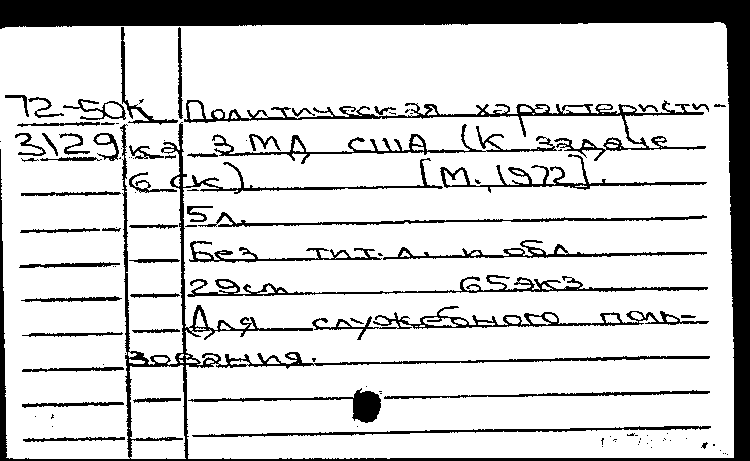 72-50К Политическая характеристи-
3129 ка 3 МД США (К задаче
6 ск). [М., 1972].
5л.
Без тит. л. и обл.
29см 65экз
Для служебного поль-
зования.